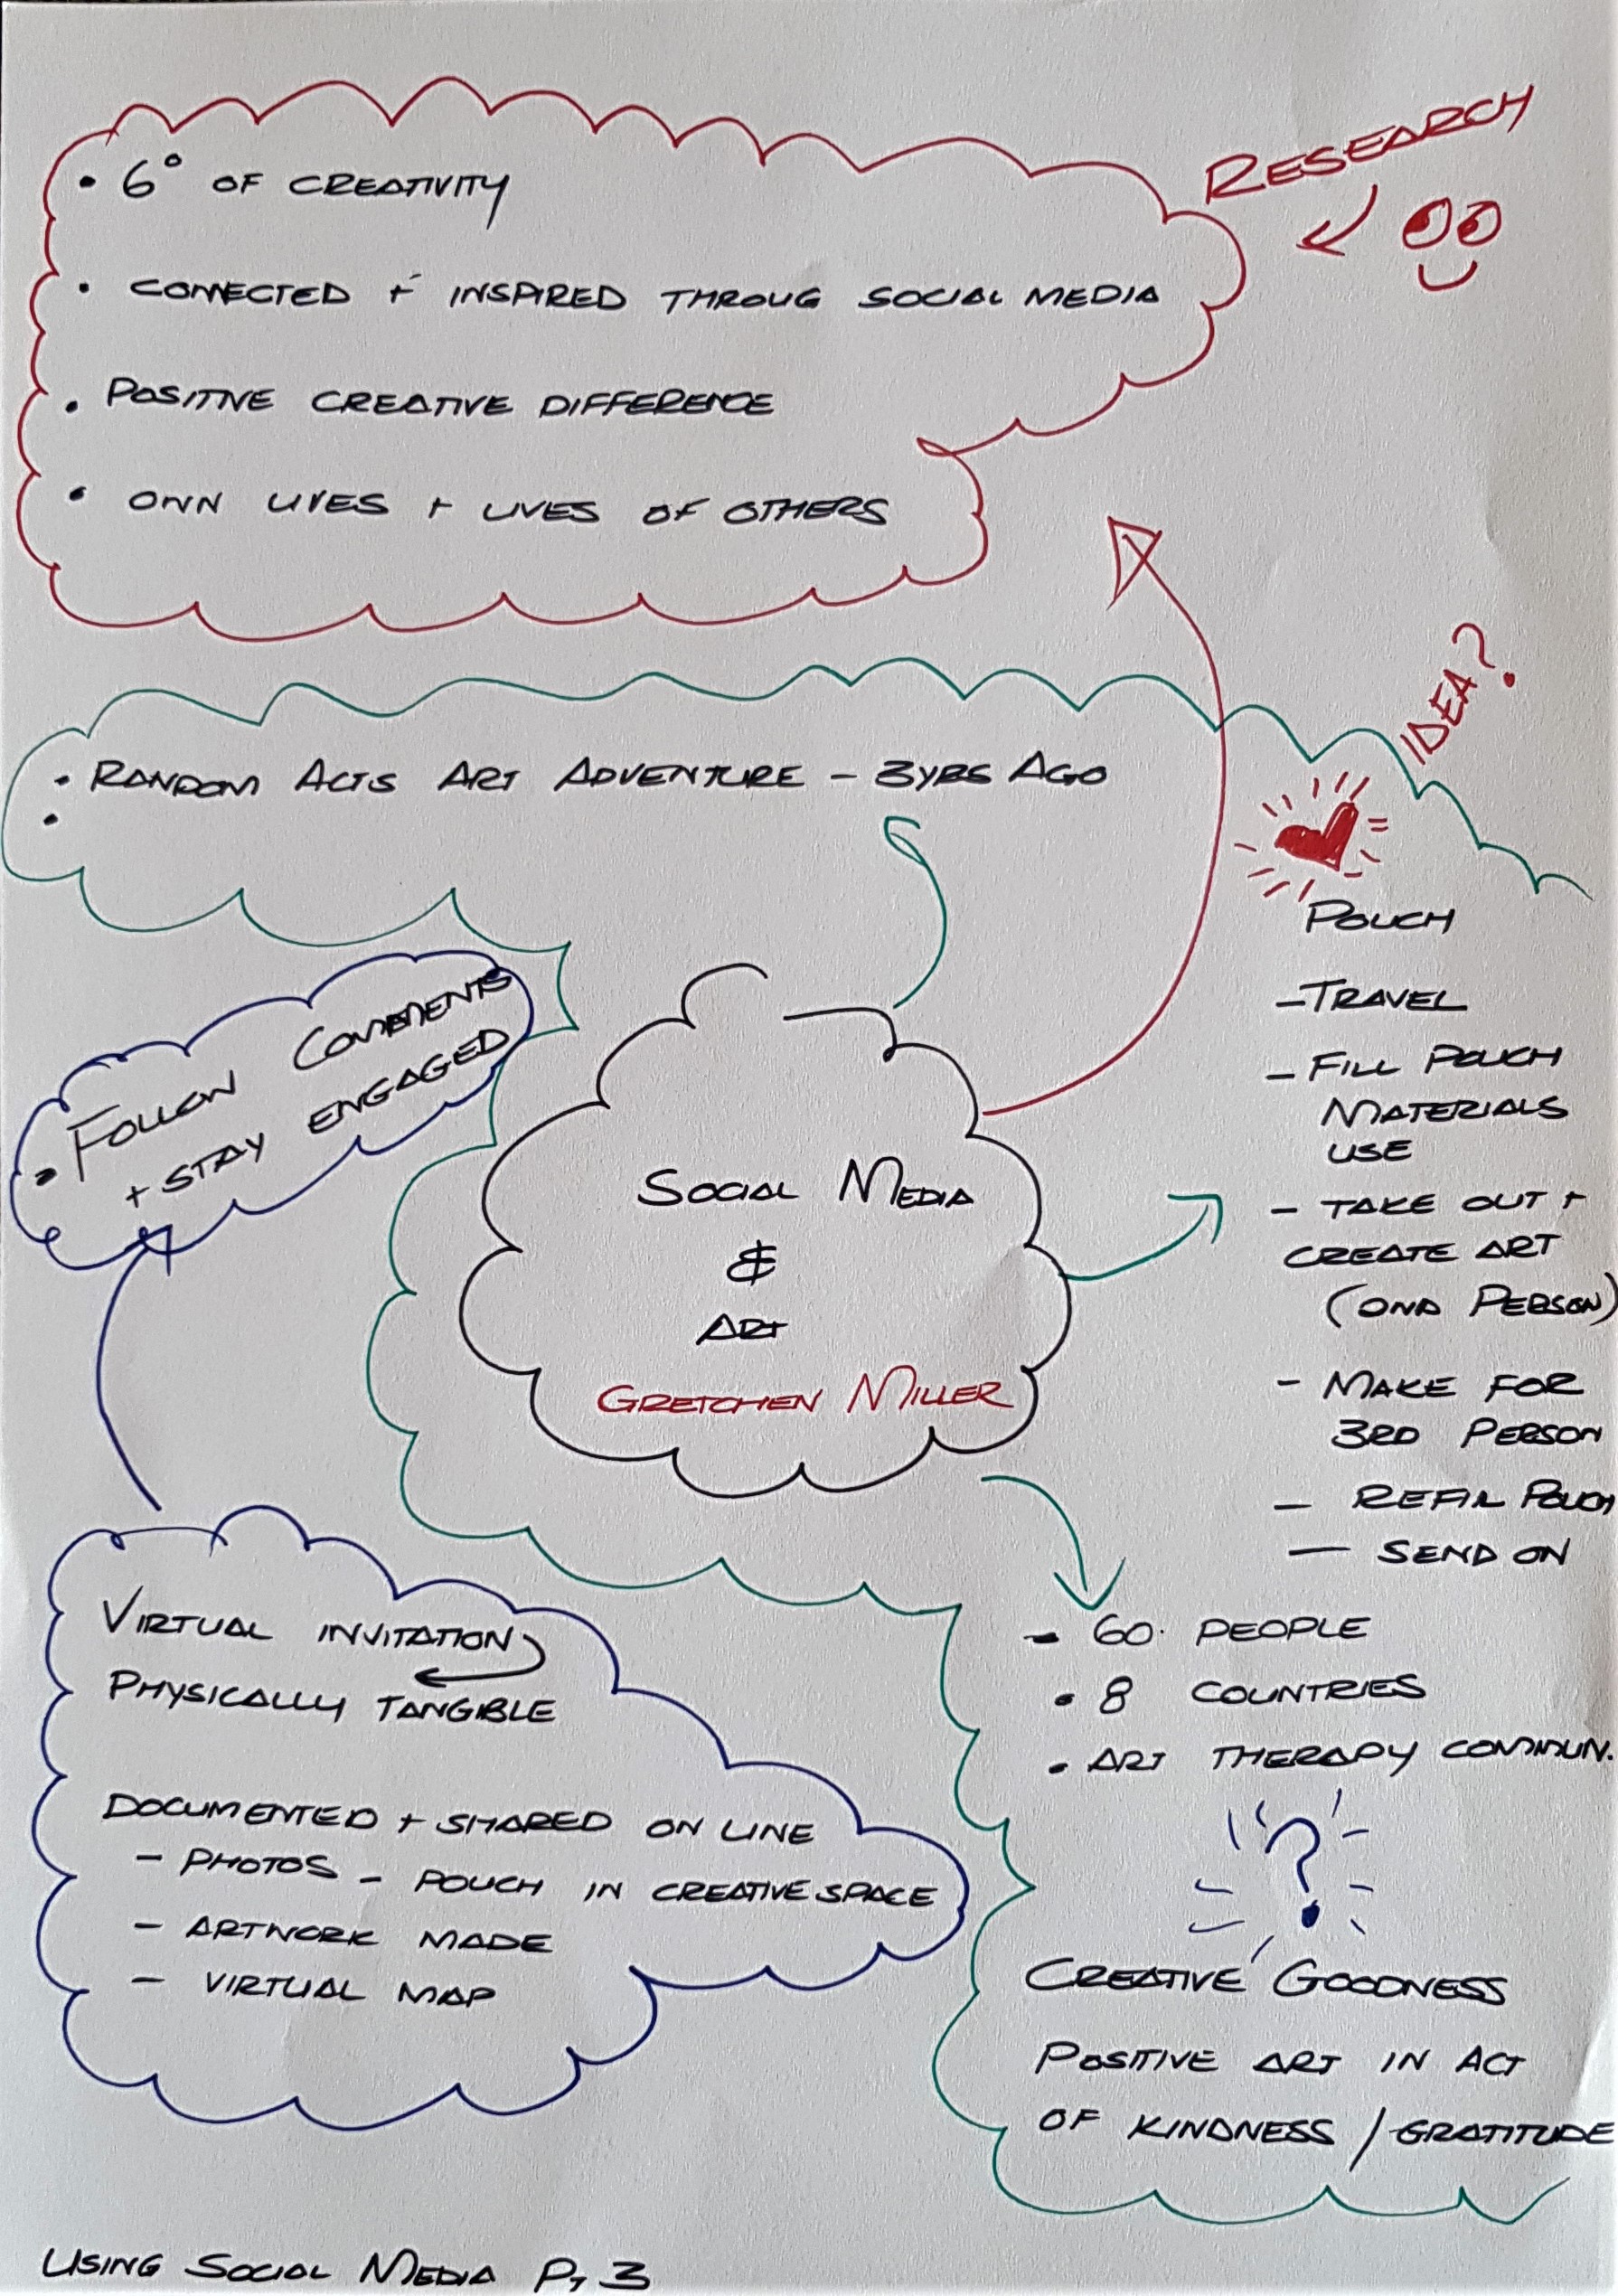 RESEARCH
• 6° OF CREATIVITY
• CONNECTED + INSPIRED THROUG SOCIAL MEDIA
• POSITIVE CREATIVE DIFFERENCE
• OWN LIVES + LIVES OF OTHERS
IDEA?
• RANDOM ACTS ART ADVENTURE – 3YRS AGO
•
POUCH
– TRAVEL
– FILL POUCH
MATERIALS
USE
– TAKE OUT +
CREATE ART
(OND PERSON)
– MAKE FOR
3RD PERSON
– REFIL POUCH
– SEND ON
• FOLLOW COMMENTS
+ STAY ENGAGED
SOCIAL MEDIA
&
ART
GRETCHEN MILLER
– 60 PEOPLE
• 8 COUNTRIES
• ART THERAPY COMMUN.
?
CREATIVE GOODNESS
POSITIVE ART IN ACT
OF KINDNESS / GRATITUDE
VIRTUAL INVITATION
PHYSICALLY TANGIBLE
DOCUMENTED + SHARED ON LINE
– PHOTOS – POUCH IN CREATIVE SPACE
– ARTWORK MADE
– VIRTUAL MAP
USING SOCIAL MEDIA PT 3